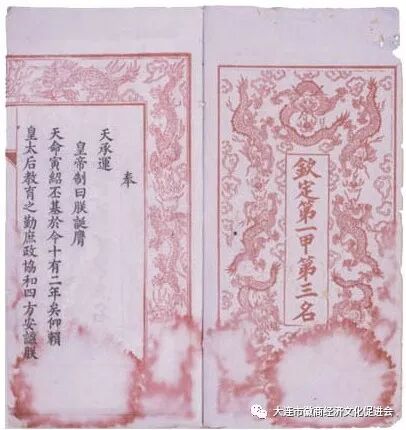 欽定第一甲第三名
奉
天承運
皇帝制曰朕誕膺
天命寅紹丕基於今十有二年矣仰賴
皇太后教育之勤庶政協和四方安謐朕
大连市徽商经济文化促进会